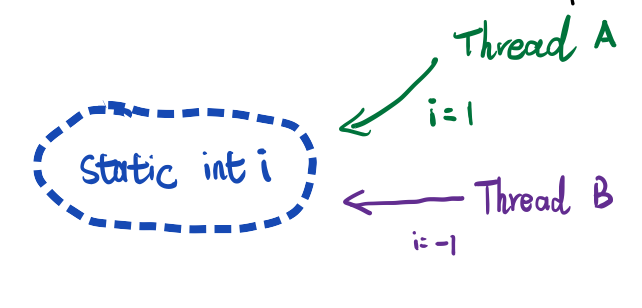 Thread A
i=1
static int i
Thread B
i=-1